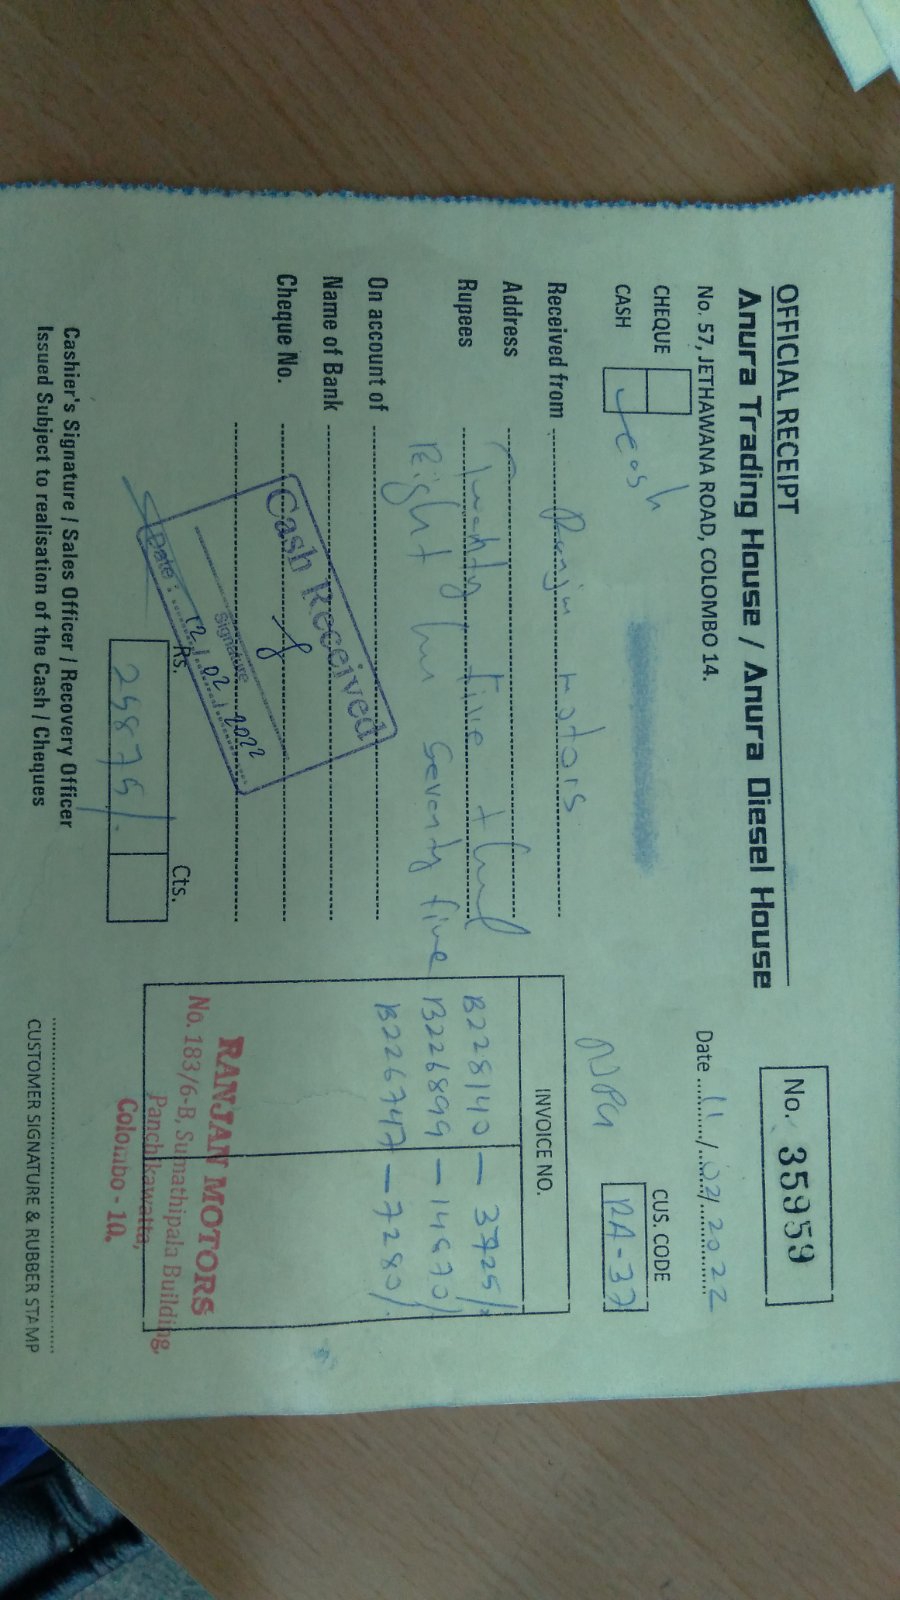 OFFICIAL RECEIPT
Anura Trading House / Anura Diesel House
No. 57, JETHAWANA ROAD, COLOMBO 14.
No. 35959
Date 11/02/2022
CHEQUE
CASH
cash
CUS. CODE
RA-37
Received from Ranjan Motors
Address
Rupees Twenty five
Eight hun Seventy five
On account of
Name of Bank
Cheque No.
Cash Received
Signature
Date : 12/02/2022
Rs. Cts.
25875/.
Cashier's Signature / Sales Officer / Recovery Officer
Issued Subject to realisation of the Cash / Cheques
INVOICE NO.
B228140 - 3925/.
B226899 - 14670/.
B226747 - 7280/.
RANJAN MOTORS
No. 183/6-B, Sumathipala Building,
Panchikawatta,
Colombo - 10.
CUSTOMER SIGNATURE & RUBBER STAMP